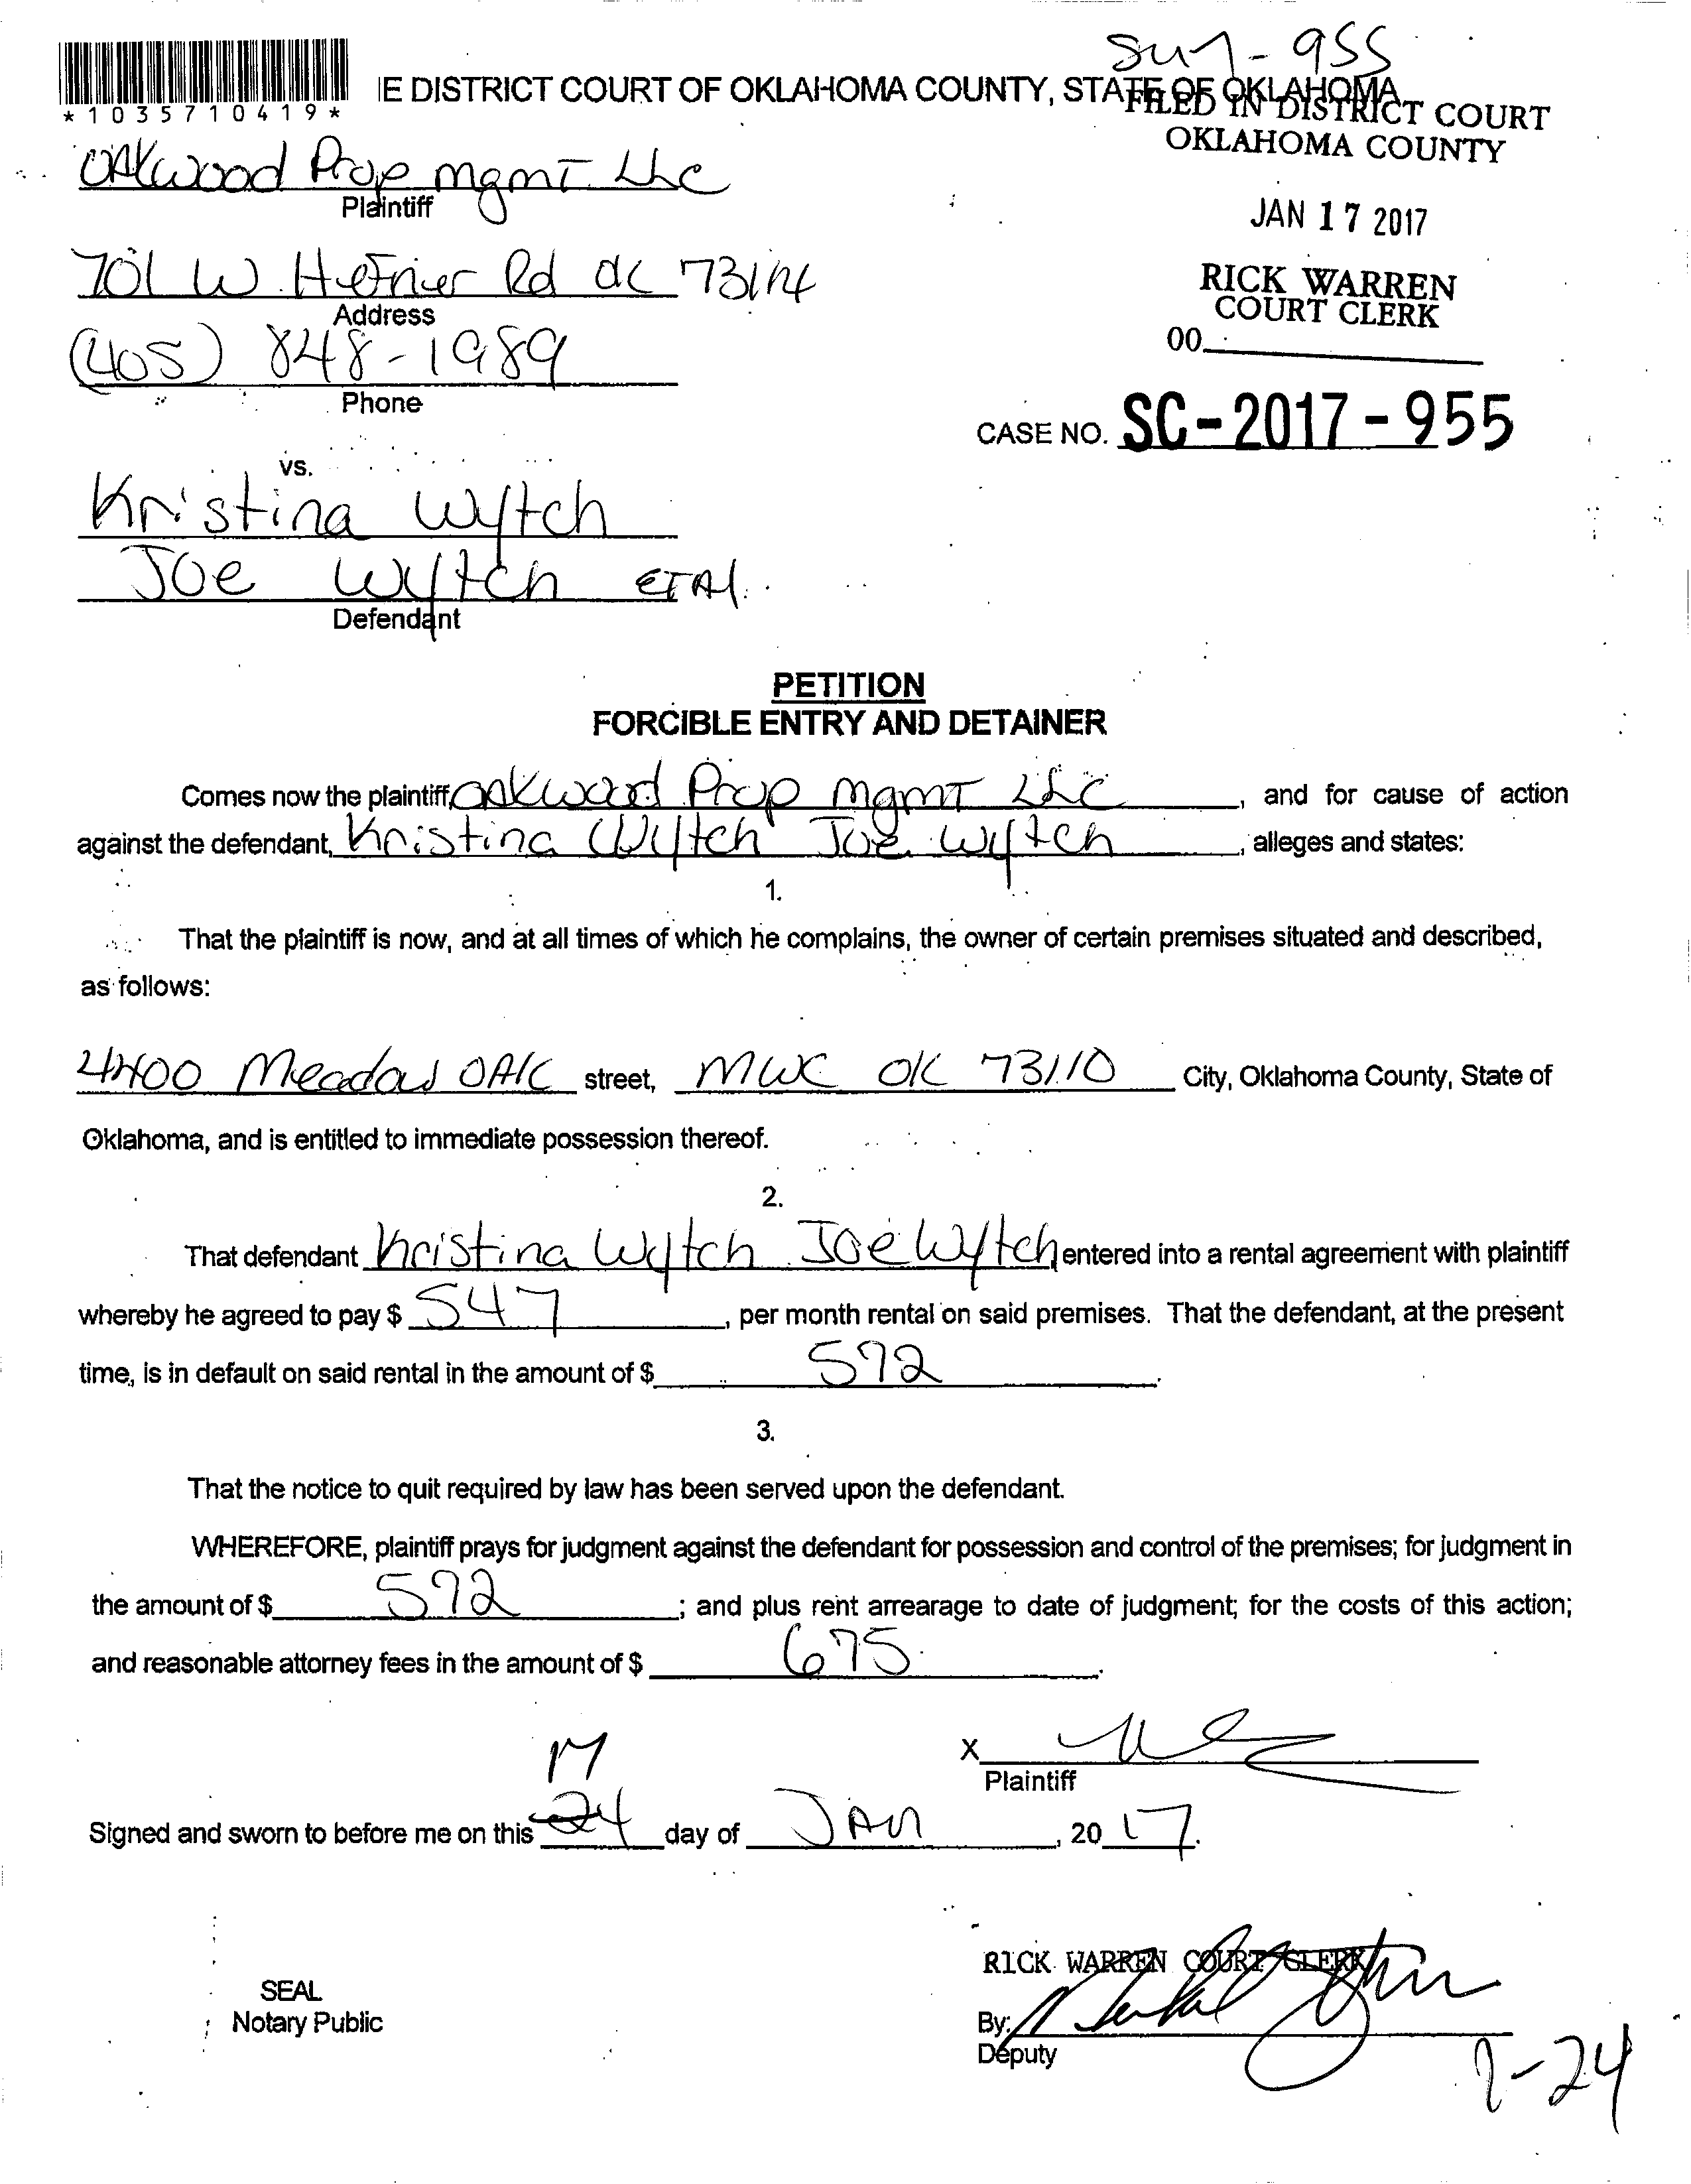 SC17-955
*1035710419*
IE DISTRICT COURT OF OKLAHOMA COUNTY, STATE OF OKLAHOMA
FILED IN DISTRICT COURT
OKLAHOMA COUNTY
JAN 17 2017
RICK WARREN
COURT CLERK
00
CASE NO. SC-2017-955
Oakwood Prop mgmt LLC
Plaintiff
701 W. Hefner Rd OK 73114
Address
(405) 848-1989
Phone
vs.
Kristina Wytch
Joe Wytch ETAl.
Defendant
PETITION
FORCIBLE ENTRY AND DETAINER
Comes now the plaintiff, Oakwood Prop mgmt LLC, and for cause of action
against the defendant, Kristina Wytch Joe Wytch, alleges and states:
1.
That the plaintiff is now, and at all times of which he complains, the owner of certain premises situated and described,
as follows:
4400 Meadow OAK street, MWC OK 73110 City, Oklahoma County, State of
Oklahoma, and is entitled to immediate possession thereof.
2.
That defendant Kristina Wytch Joe Wytch entered into a rental agreement with plaintiff
whereby he agreed to pay $ 547, per month rental on said premises. That the defendant, at the present
time, is in default on said rental in the amount of $ 592.
3.
That the notice to quit required by law has been served upon the defendant.
WHEREFORE, plaintiff prays for judgment against the defendant for possession and control of the premises; for judgment in
the amount of $ 592; and plus rent arrearage to date of judgment; for the costs of this action;
and reasonable attorney fees in the amount of $ 675.
X
Plaintiff
17
Signed and sworn to before me on this 24 day of JAN, 20 17.
RICK WARREN COURT CLERK
SEAL
Notary Public
By:
Deputy
1-24